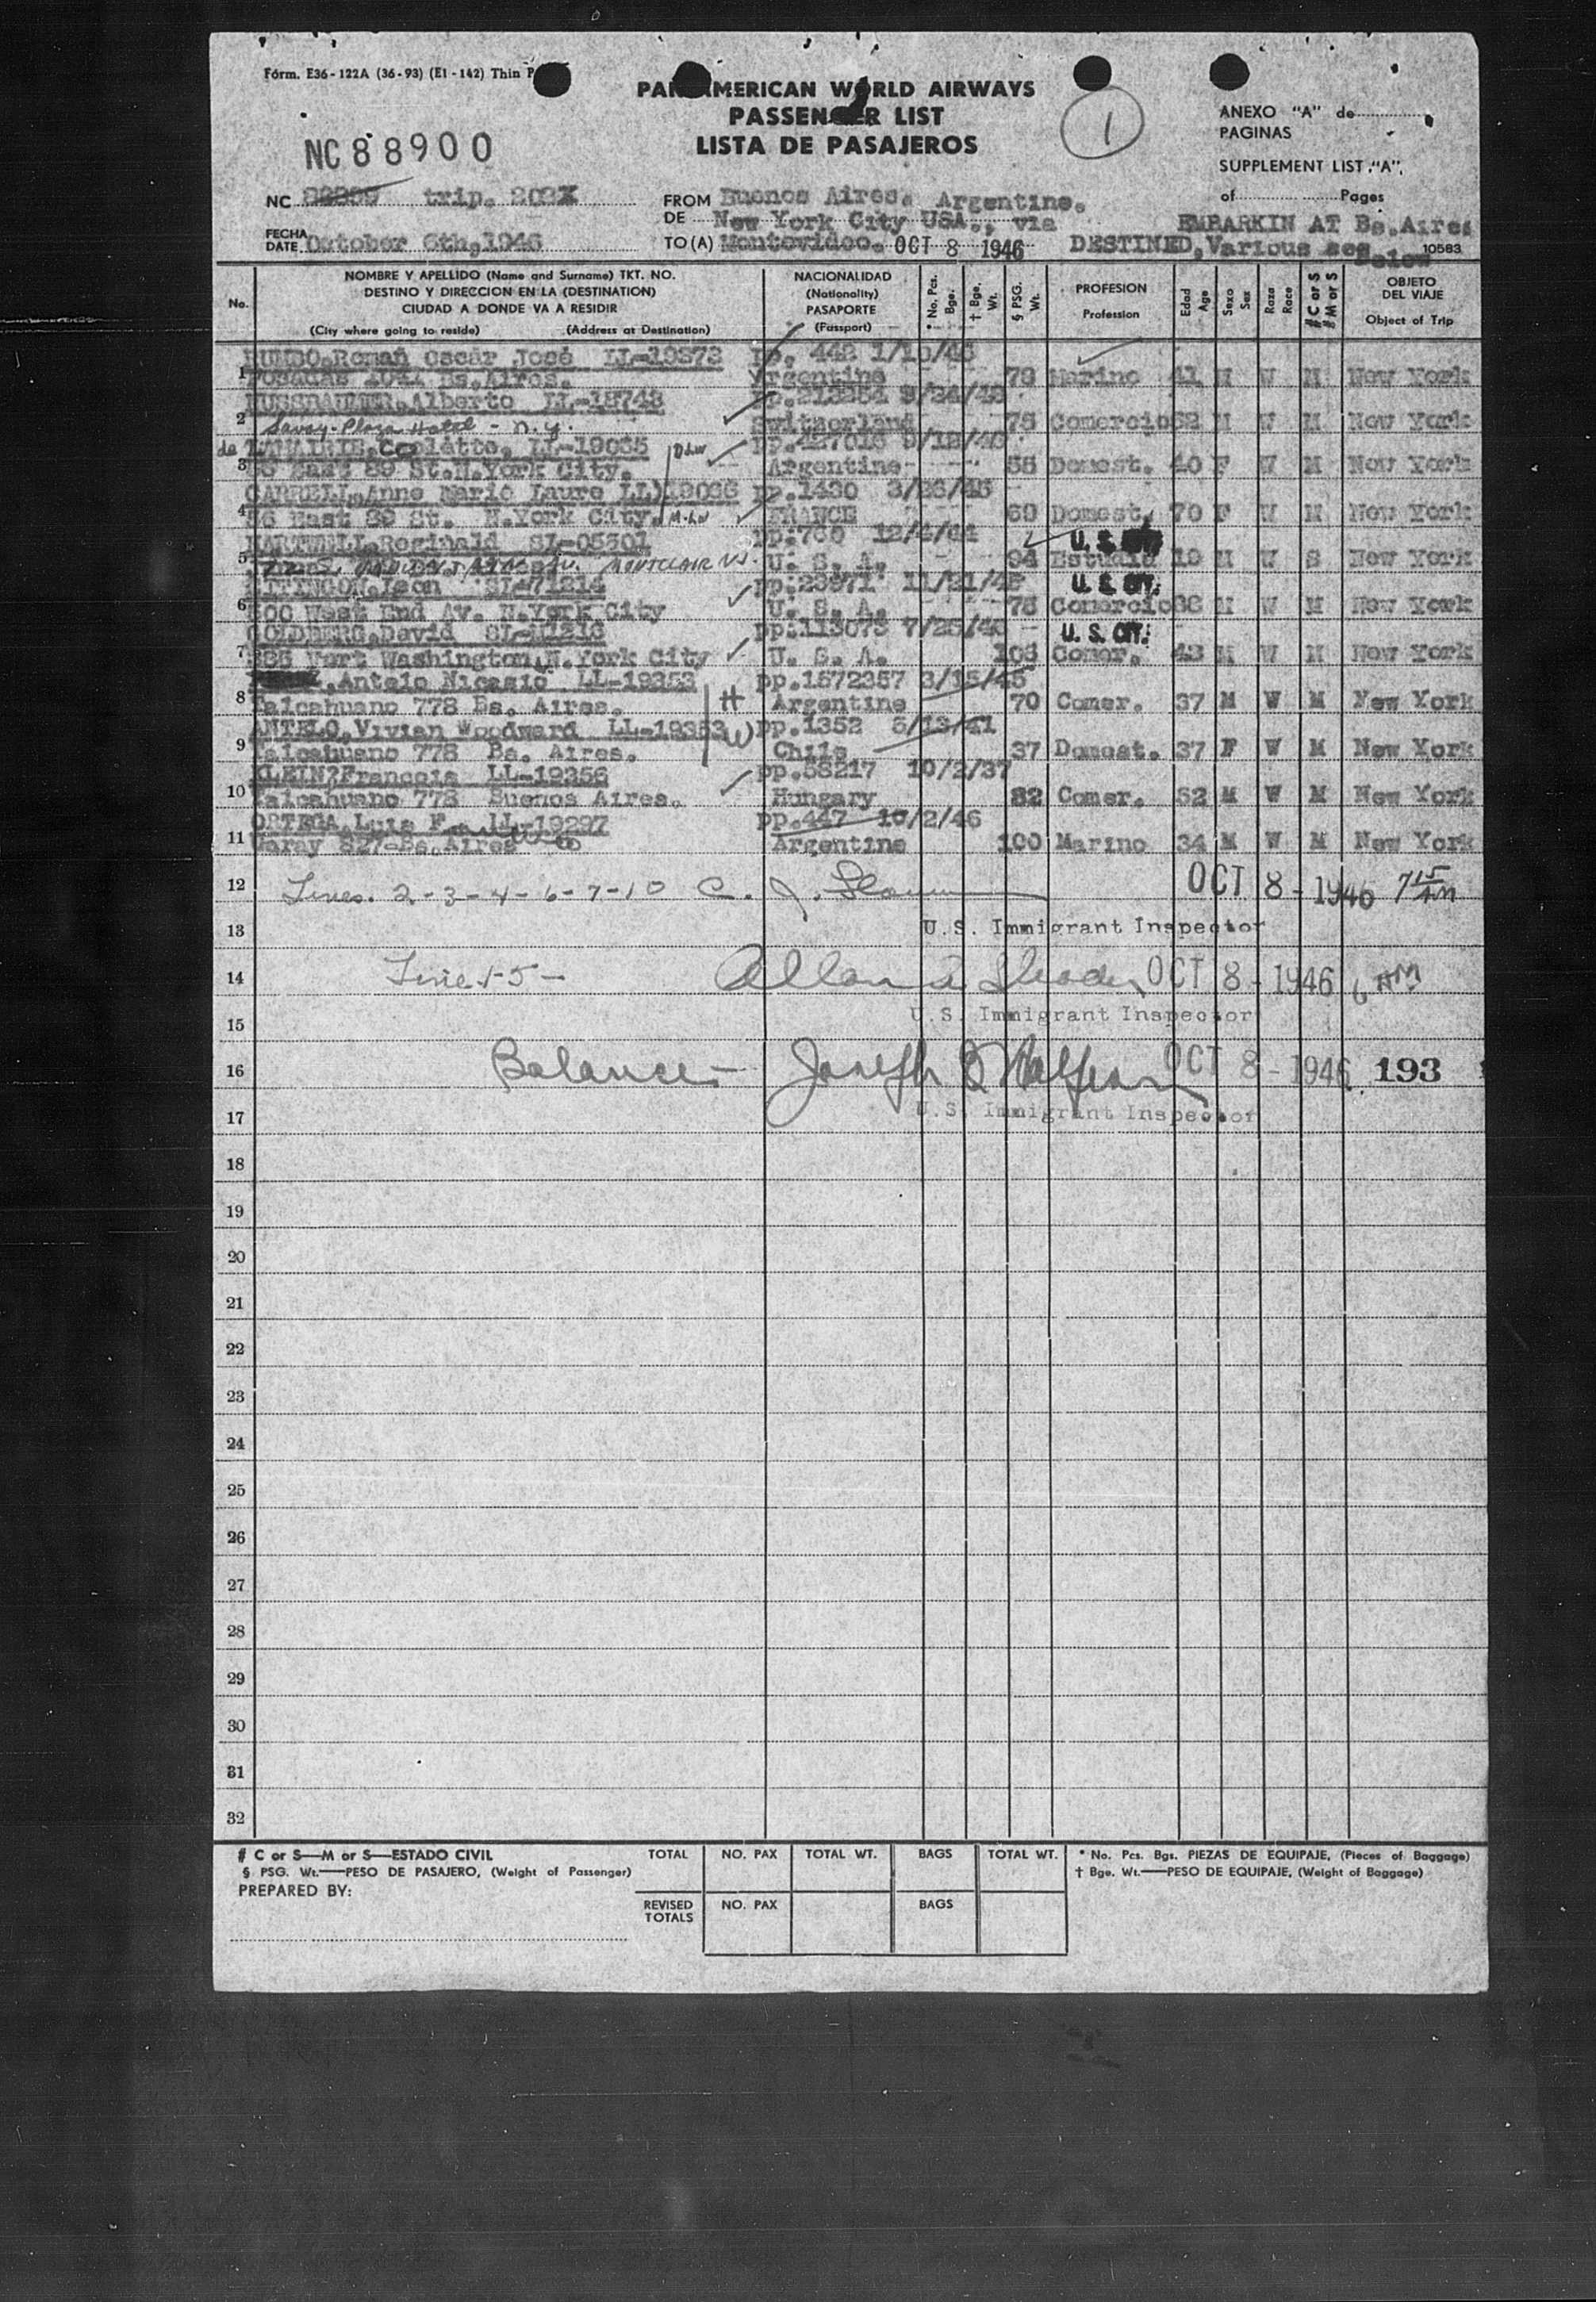 Form. E36-122A (36-93) (E1-142) Thin P
PAN AMERICAN WORLD AIRWAYS
PASSENGER LIST
LISTA DE PASAJEROS
1
ANEXO "A" de
PAGINAS
SUPPLEMENT LIST "A",
of Pages
NC 88900
NC trip. 202
FROM Buenos Aires. Argentine.
DE New York City USA., via
EMBARKIN AT Bs.Aires
FECHA
DATE October 6th,1946
TO (A) Montevideo. OCT 8 1946
DESTINED,Various see Below
10583
No.
NOMBRE Y APELLIDO (Name and Surname) TKT. NO.
DESTINO Y DIRECCION EN LA (DESTINATION)
CIUDAD A DONDE VA A RESIDIR
(City where going to reside) (Address at Destination)
NACIONALIDAD
(Nationality)
PASAPORTE
(Passport)
* No. Pcs. Bge.
† Bge. Wt.
§ PSG. Wt.
PROFESION
Profession
Edad Age
Sexo Sex
Raza Race
# C or S
# M or S
OBJETO
DEL VIAJE
Object of Trip
Roman Oscar José LL-19373 pp. 442 1/10/46
1 Bs.Aires. Argentine 78 Marino 41 M W M New York
NUSSBAUMER,Alberto LL-18748 pp.213254 9/24/46
2 Savoy-Plaza Hotel - N.Y. Switzerland 75 Comercio 52 M W M New York
de Colette, LL-19035 D.LW pp.427016 9/12/46
3 56 East 89 St.N.York City. Argentine 55 Domest. 40 F W M New York
Anne Marie Laure LL)19036 pp.1430 3/26/46
4 56 East 89 St. N.York City. M.LW FRANCE 60 Domest. 70 F W M New York
HARTWELL,Reginald SL-05501 pp:760 12/4/44 U.S.
5 MONTCLAIR NJ. U. S. A. 94 Estudia 19 M W S New York
EITINGON,Leon SL-71214 pp:23971 11/21/45 U.S. CIT.
6 500 West End Av. N.York City U. S. A. 75 Comercio M W M New York
GOLDBERG,David SL-71216 pp:113073 7/25/46 U.S. CIT.
7 Fort Washington,N.York City U. S. A. 103 Comer. 43 M W M New York
,Antelo Nicasio LL-19353 H pp.1572357 3/15/45
8 Talcahuano 778 Bs. Aires. Argentine 70 Comer. 37 M W M New York
ANTELO,Vivian Woodward LL-19353 W pp.1352 6/13/41
9 Talcahuano 778 Bs. Aires. Chile 37 Domest. 37 F W M New York
KLEIN?Francois LL-19356 pp.58217 10/2/37
10 Talcahuano 778 Buenos Aires. Hungary 82 Comer. 52 M W M New York
ORTEGA,Luis F. LL-19297 pp.447 10/2/46
11 Garay 827-Bs.Aires Argentine 100 Marino 34 M W M New York
12 Lines. 2-3-4-6-7-10 C. J. OCT 8-1946 7 15 AM
13 U.S. Immigrant Inspector
14 Line 1-5- Allan A. OCT 8-1946 6 AM
15 U.S. Immigrant Inspector
16 Balance - Joseph B OCT 8-1946 193
17 U.S. Immigrant Inspector
18
19
20
21
22
23
24
25
26
27
28
29
30
31
32
# C or S—M or S—ESTADO CIVIL
§ PSG. Wt.—PESO DE PASAJERO, (Weight of Passenger)
PREPARED BY:
TOTAL NO. PAX TOTAL WT. BAGS TOTAL WT.
REVISED TOTALS NO. PAX BAGS
* No. Pcs. Bgs. PIEZAS DE EQUIPAJE, (Pieces of Baggage)
† Bge. Wt.—PESO DE EQUIPAJE, (Weight of Baggage)